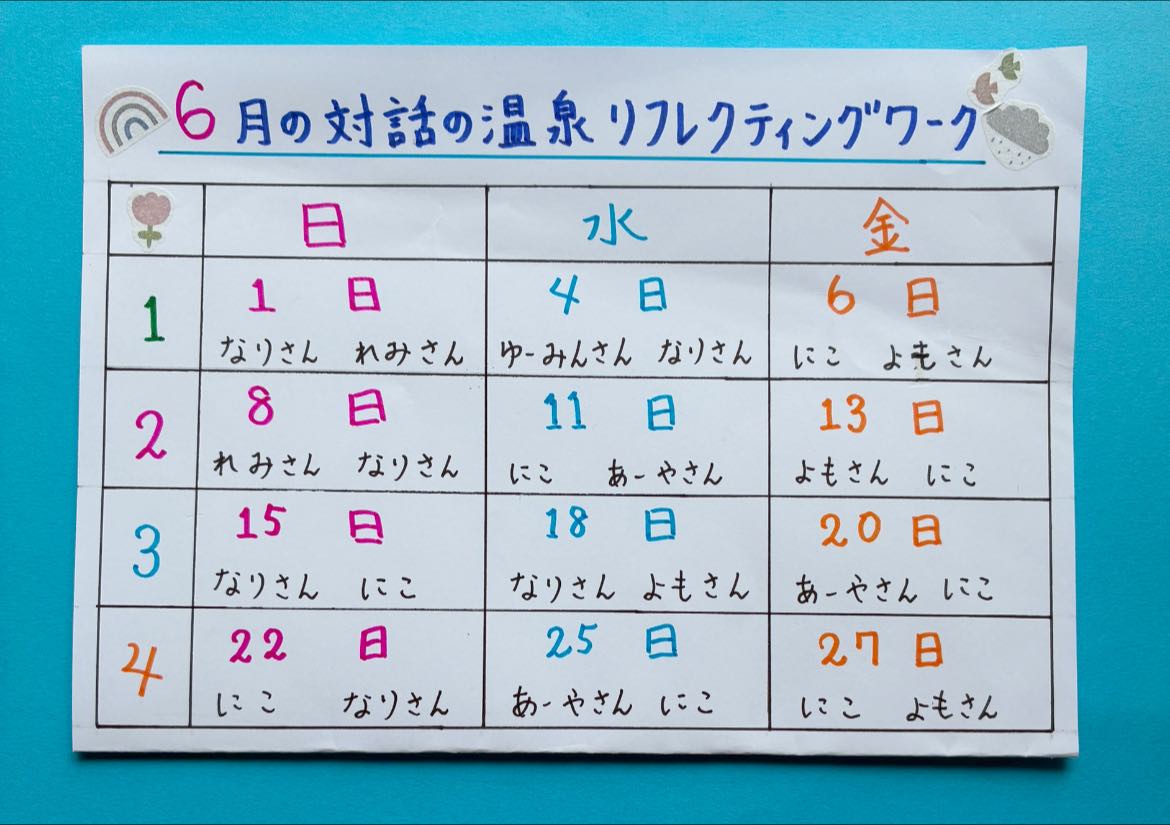 6月の対話の温泉 リフレクティングワーク
日 水 金
1 1日 4日 6日
なりさん れみさん ゆーみんさん なりさん にこ よもさん
2 8日 11日 13日
れみさん なりさん にこ あーやさん よもさん にこ
3 15日 18日 20日
なりさん にこ なりさん よもさん あーやさん にこ
4 22日 25日 27日
にこ なりさん あーやさん にこ にこ よもさん